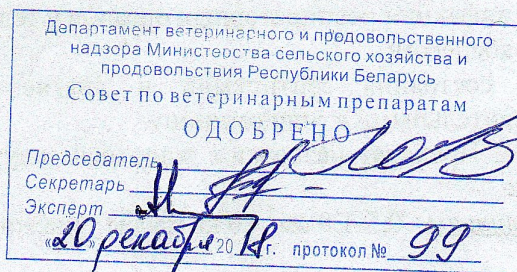 Департамент ветеринарного и продовольственного
надзора Министерства сельского хозяйства и
продовольствия Республики Беларусь
Совет по ветеринарным препаратам
ОДОБРЕНО
Председатель
Секретарь
Эксперт
«20» декабря 2018г. протокол № 99